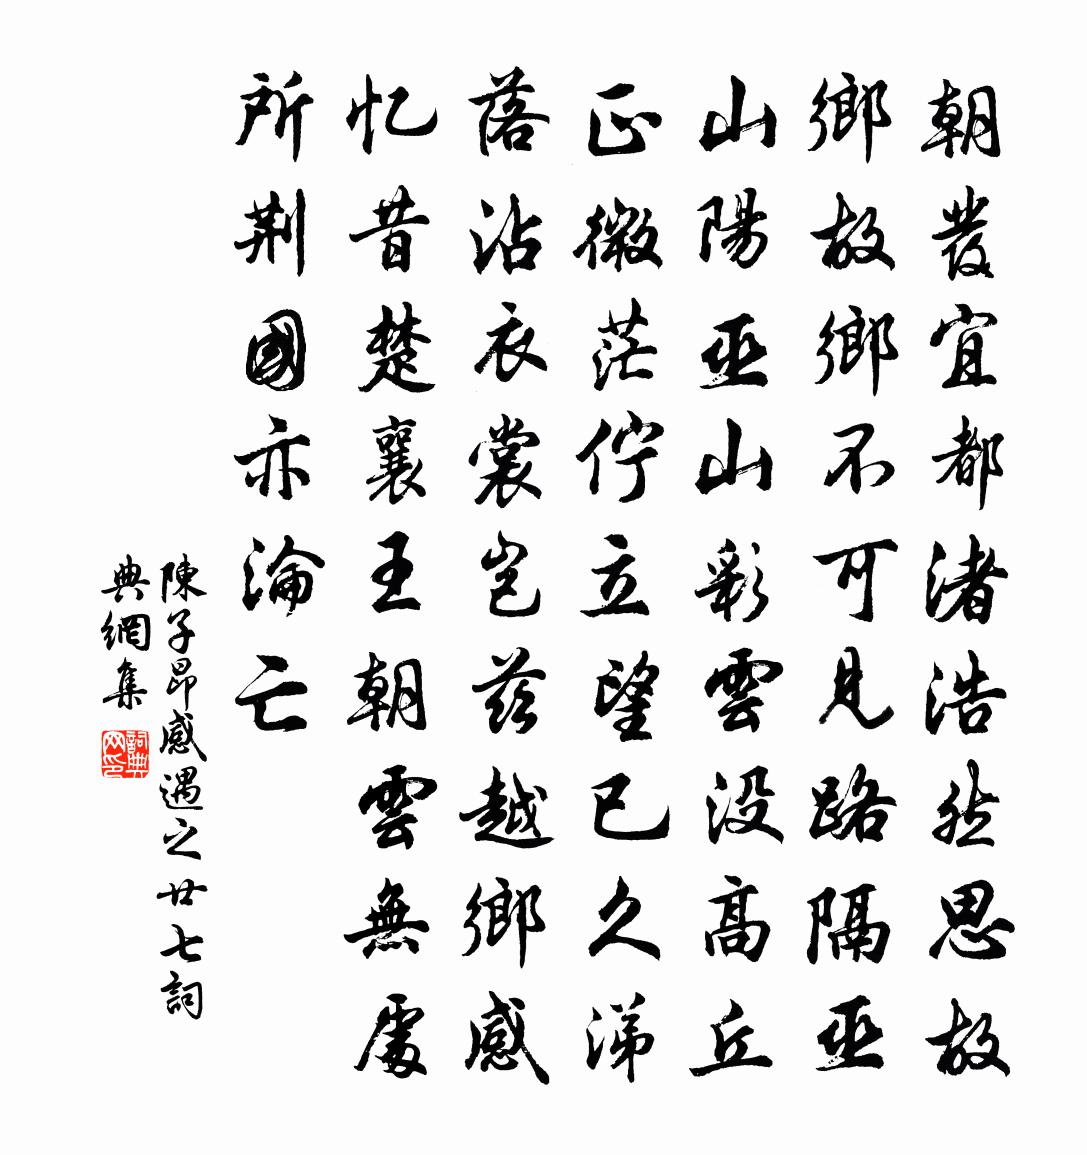 朝發宜都渚浩然思故
鄉故鄉不可見路隔巫
山陽巫山彩雲没高丘
正微茫佇立望已久涕
落沾衣裳豈茲越鄉感
忆昔楚襄王朝雲無處
所荆國亦淪亡
陳子昂感遇之廿七詞
典網集
詞典
网印